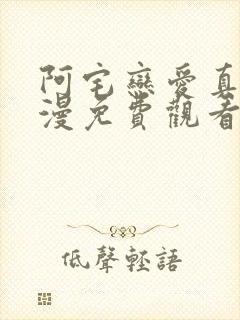 阿宅戀愛真
漫免費觀看
低聲輕語